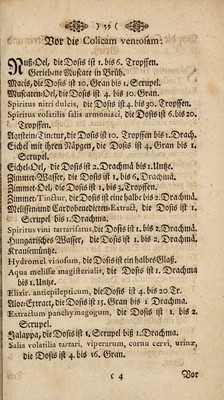 ) 39 (
Vor die Colicam ventosam:
Nuß-Oel, die Dosis ist 1. bis 6. Tropffen.
Geriebene Muscate in Brüh.
Macis, die Dosis ist 10. Gran bis 1. Scrupel.
Muscaten-Oel, die Dosis ist 4. biß 10. Gran.
Spiritus nitri dulcis, die Dosis ist 4. bis 30. Tropffen.
Spiritus volatilis salis armoniaci, die Dosis ist 6. bis 20.
Tropffen.
Agtstein-Tinctur, die Dosis ist 10. Tropffen bis 1. Drach.
Eichel mit ihren Näpgen, die Dosis ist 4. Gran bis 1.
Scrupel.
Eichel-Oel, die Dosis ist 2. Drachmâ bis 1. Untze.
Zimmet-Wasser, die Dosis ist 1. bis 6. Drachmâ.
Zimmet-Oel, die Dosis ist 1. bis 3. Tropffen.
Zimmet-Tinctur, die Dosis ist eine halbe bis 2. Drachmâ.
Melissen und Cardobenedicten-Extract, die Dosis ist 1.
Scrupel bis 1. Drachma.
Spiritus vini tartarisatus, die Dosis ist 1. bis 2. Drachmâ.
Hungarisches Wasser, die Dosis ist 1. bis 2. Drachmâ.
Krausemüntze.
Hydromel vinosum, die Dosis ist ein halbes Glaß.
Aqua melissæ magisterialis, die Dosis ist 1. Drachma
bis 1. Untze.
Elixir. antiepilepticum, die Dosis ist 4. bis 20. Tr.
Aloe-Extract, die Dosis ist 15. Gran bis 1 Drachma.
Extractum panchymagogum, die Dosis ist 1. bis 2.
Scrupel.
Jalappa, die Dosis ist 1. Scrupel biß 1. Drachma.
Salia volatilia tartari, viperarum, cornu cervi, urinæ,
die Dosis ist 4. bis 16. Gran.
c 4 Vor